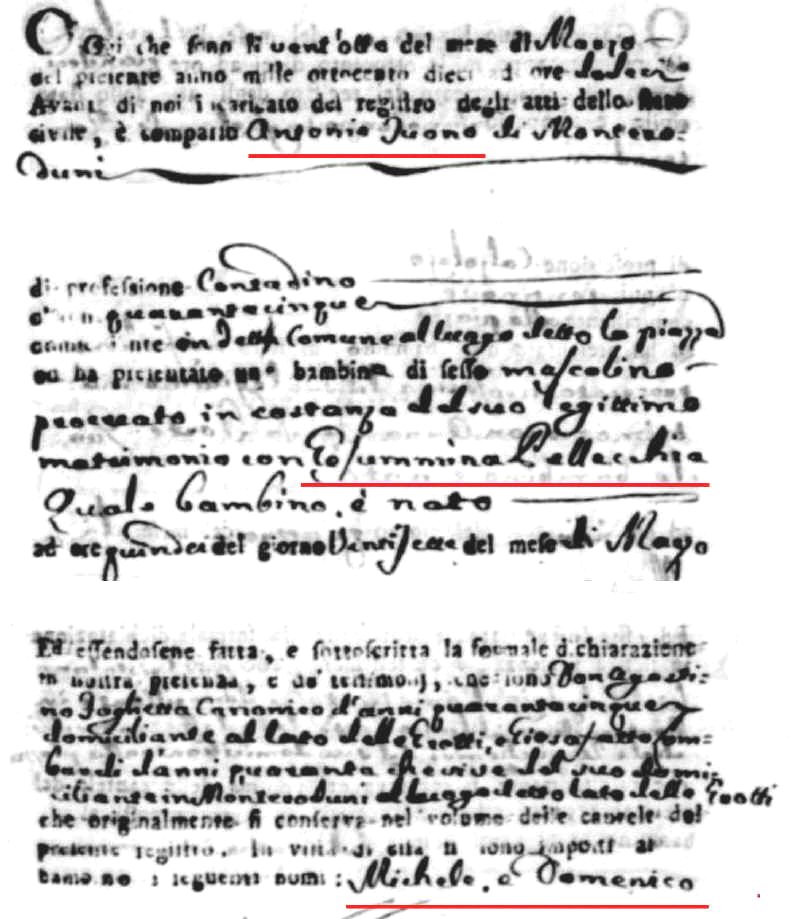 Oggi che sono li vent'otto del mese di Marzo
del presente anno mille ottocento dieci ad ore dodeci
Avanti di noi incaricato del registro degli atti dello stato
civile, è comparso Antonio Iuono di Montero=
duni
di professione Contadino
d'anni quarantacinque
in detta Comune al luogo detto la piazza
ed ha presentato uno bambino di sesso mascolino
procreato in costanza del suo legittimo
matrimonio con Gesummina Pellecchia
Quale bambino, è nato
ad ore quindeci del giorno ventisette del mese di Marzo
Ed essendosene fatta, e sottoscritta la formale dichiarazione
in nostra presenza, e de' testimonj, che sono Don Agosti=
no Foglietta Canonico d'anni quarantacinque
domiciliante al lato delle Grotti, e Giosafatto Lom=
bardi d'anni quaranta che vive del suo domi=
ciliante in Monteroduni al luogo detto lato delle Grotti
che originalmente si conserva nel volume delle cautele del
presente registro. In vista di essa si sono imposti al
bambino i seguenti nomi: Michele, e Domenico